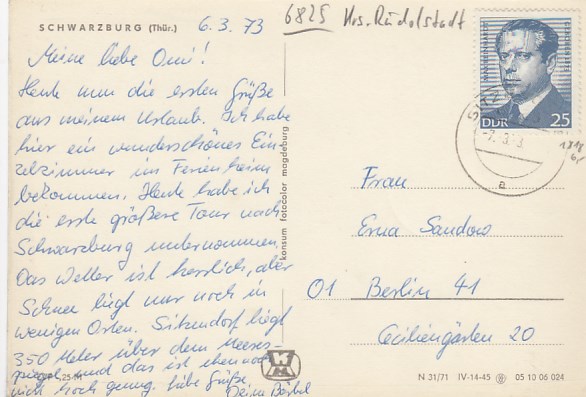 SCHWARZBURG (Thür.)
6.3.73
6825 Krs. Rudolstadt
Meine liebe Omi!
Heute nun die ersten Grüße
aus meinem Urlaub. Ich habe
hier ein wunderschönes Ein-
zelzimmer im Ferienheim
bekommen. Heute habe ich
die erste größere Tour nach
Schwarzburg unternommen.
Das Wetter ist herrlich, aber
Schnee liegt nur noch in
wenigen Orten. Sitzendorf liegt
350 Meter über dem Meeres-
spiegel und das ist eben
nicht hoch genug. Liebe Grüße,
Deine Bärbel
konsum fotocolor magdeburg
DDR 25
-7.-3.73
a
Frau
Erna Sandow
01 Berlin 41
Ceciliengärten 20
N 31/71 IV-14-45 05 10 06 024